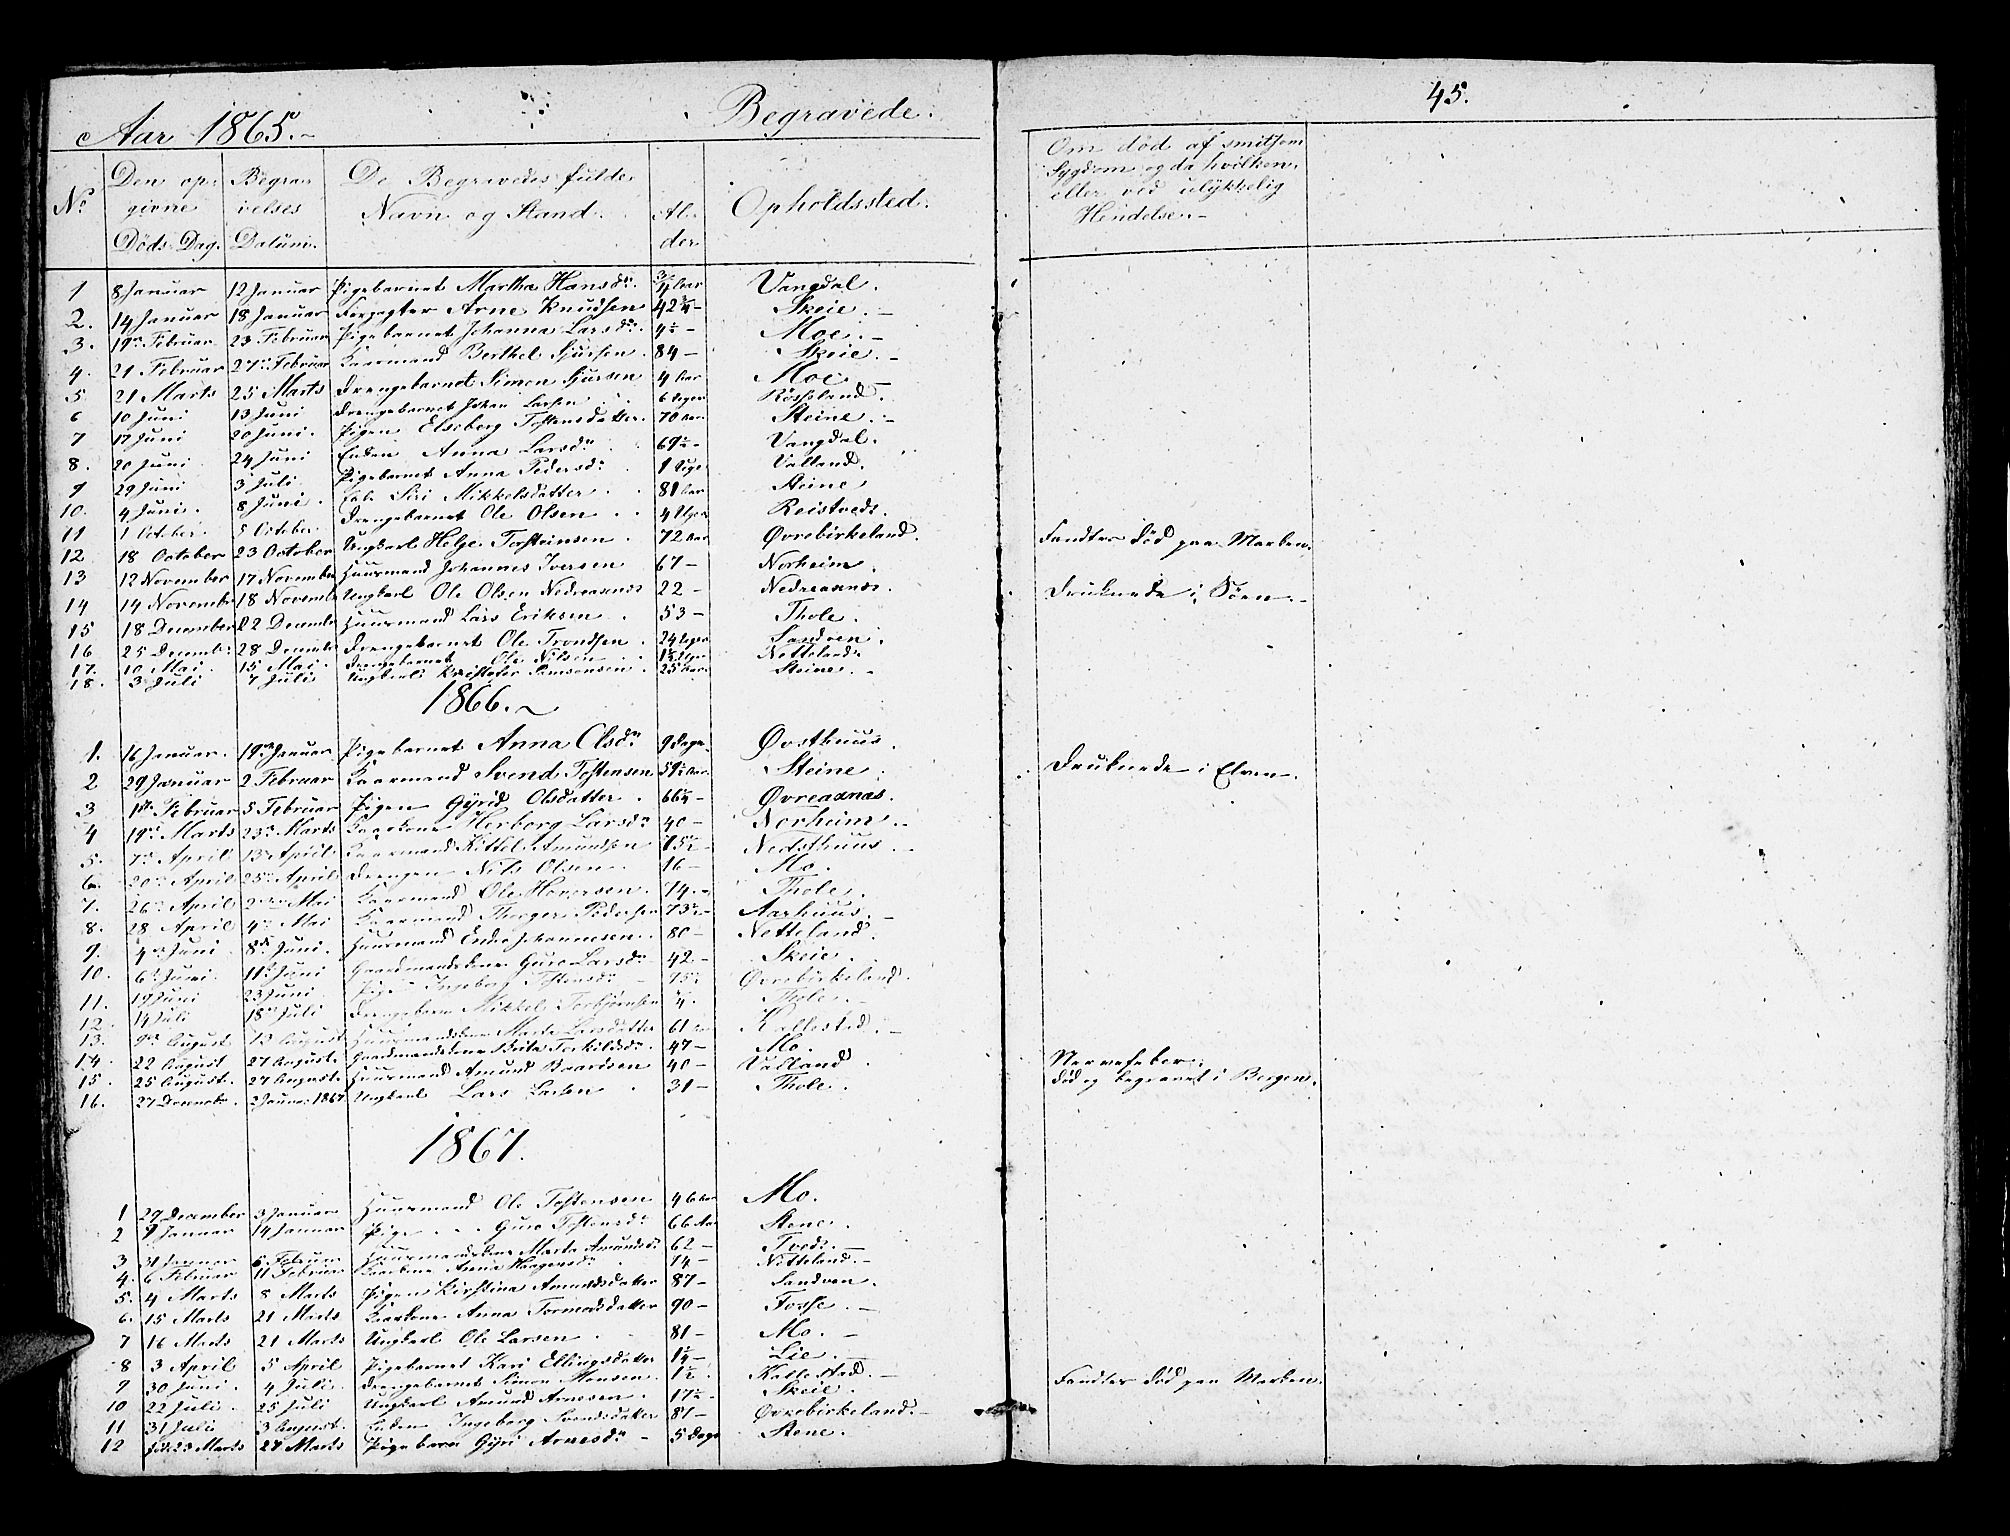 45.
Aar 1865.
Begravede.
No
Den opgivne Døds-Dag.
Begravelses Datum.
De Begravedes fulde Navn og Stand.
Alder.
Opholdssted.
Om død af smitsom Sygdom og da hvilken, eller ved ulykkelig Hendelse.
1 8 Januar 12 Januar Pigebarnet Martha Hansdr. 3/4 Aar Vangdal.
2. 14 Januar 18 Januar Arne Knudsen 42 3/4 Skeie.
3. 19de Februar 23 Februar Pigebarnet Johanna Larsdr. 4 1/2 Moe.
4. 21 Februar 27de Februar Kaarmand Berthel Sjursen. 84 Skeie.
5 21 Marts 25 Marts Drengebarnet Simon Sjursen 4 Aar Moe.
6 10 Juni 13 Juni Drengebarnet Johan Larsen 6 Uger Røsseland.
7 17 Juni 20 Juni. Pigen Elseberg Tostensdatter. 70 Aar. Steine.
8. 20 Juni 24 Juni Enken Anna Larsdr 69 1/2 Vangdal.
9 29 Juni 3 Juli Pigebarnet Anna Pedersdr 1 Uge Valland.
10. 4 Juni. 8 Juni. Siri Mikkelsdatter. 81 Aar Steine
11 1 October. 5 October. Drengebarnet Ole Olsen 4 Uger Reistveds.
12 18 October 23 October Ungkarl Helge Torsteinsen 72 Aar Øvrebirkeland. Fandtes død paa Marken.
13 12 November 17 November Huusmand Johannes Iversen 67 Norheim.
14 14 November 18 Novembr Ungkarl Ole Olsen Nedreaxnæs 22 Nedreaxnæs. Druknede i Søen.
15 18 December 22 Decembr Huusmand Lars Eriksen 53 Thole.
16 25 Decembr 28 Decembr Drengebarnet Ole Trondsen 24 Uger Sandven.
17. 10 Mai 15 Mai. Drengebarnet Ole Nilsen 1 1/2 Uger Netteland
18. 3 Juli 7 Juli Ungkarl Kristofer Samsonsen 25 Aar Steine.
1866.
1. 16 Januar. 19de Januar. Pigebarnet Anna Olsdr 9 Dage. Øvsthuus.
2 29 Januar 2 Februar Kaarmand Svend Tostensen 59 1/2 Aar. Steine. Druknede i Elven.
3 1ste Februar 5 Februar Pigen Gyrid Olsdatter. 66 1/4 Øvreaxnæs.
4 19de Marts 23de Marts Herborg Larsdr 40 Norheim.
5. 7de April 13de April Kaarmand Kittel Amundsen 75 1/2 Nedsthuus.
6. 20de April 25de April Drengen Nils Olsen 16 Mo.
7. 26de April 2den Mai Kaarmand Ole Haversen. 74. Thole.
8. 28 April 4de Mai Kaarmand Thorger Pedersen 73 1/2 Aarhuus.
9. 4de Juni 8de Juni. Huusmand Ende Johannesen. 80 Netteland.
10. 6te Juni. 11te Juni Gaardmandskone Guro Larsdr 42. Skeie.
11. 19 Juni 23 Juni Pige Ingeborg Tostensdr 75 1/2 Øvrebirkeland.
12. 14 Juli 18de Juli Drengebarn Mikkel Torbjørnsen Thole.
13. 9de August 13 August Huusmandskone Marta Larsdatter 61 Aar Kallestad.
14. 22 August 27 August. Gaardmandskone Brita Torkildsdr. 47 Mo.
15. 25 August. 27 August. Huusmand Amund Baardsen 40 Valland. Nervefeber.
16. 27 Decembr. 2 Januar 1867 Ungkarl Lars Larsen 31 Thole. død og begravet i Bergen.
1867.
1 29 December 3 Januar Huusmand Ole Tostensen 46 Aar Mo.
2 9 Januar 14 Januar Pige Guro Tostensdr 66 Aar Stene.
3 31 Januar 6 Februar Huusmandskone Marta Amundsdr 62 Tveds.
4. 6 Februar 11 Februar Kaarkone Anna Haagensdr 74 Netteland.
5. 4 Marts 8 Marts Pigen Kirstina Amundsdatter 87 Sandven.
6. 15 Marts 21 Marts Kaarkone Anna Tormodsdatter 90 Fosse.
7 16 Marts 21 Marts Ungkarl Ole Larsen 81 Mo.
8 3 April 5 April Pigebarnet Kari Ellingsdatter 1 1/4 Lie.
9 30 Juni. 4 Juli. Drengebarnet Simon Monsen. 1 1/2. Kallestad.
10 22 Juli. 25 Juli Ungkarl Amund Arnesen. 17 1/2 Skeie. Fandtes død paa Marken.
11 31 Juli 3 August. Enken Ingeborg Svendsdatter 81 Øvrebirkeland.
12 23 Marts 27 Marts Pigebarn Gyri Arnesdr 5 Dage Stene.